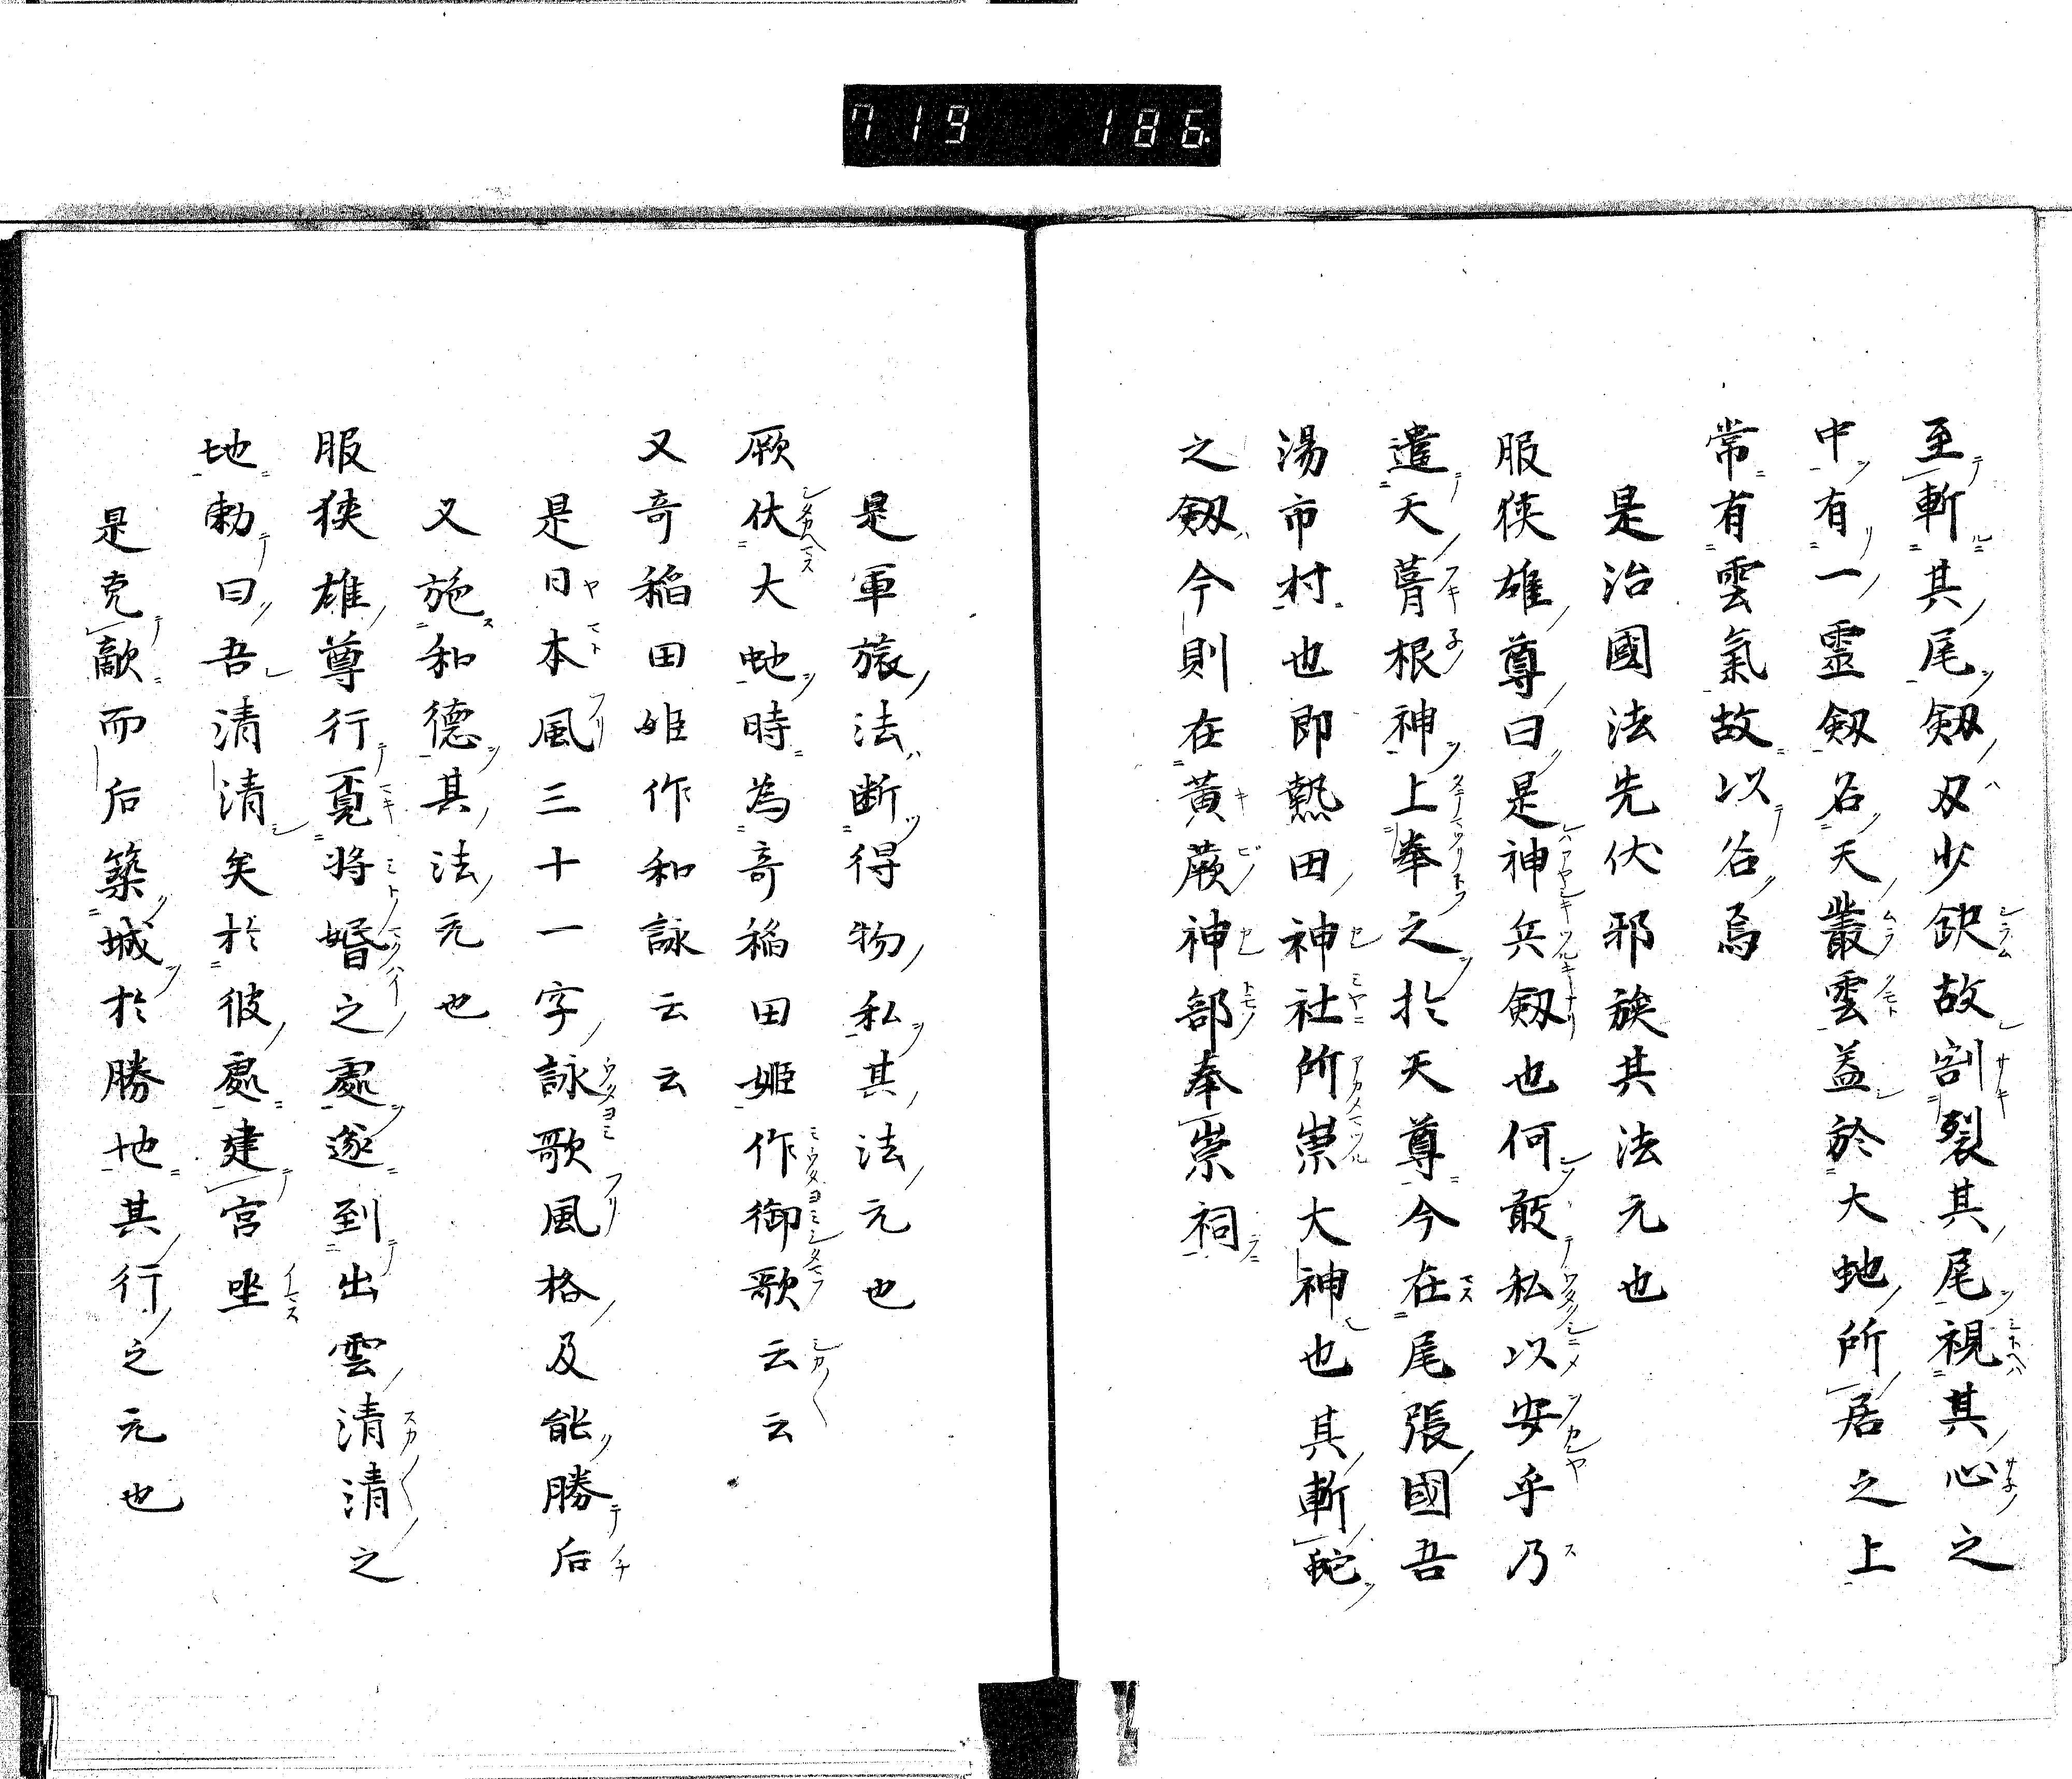 719 186
至斬其尾劔刃少缺故割裂其尾視其心之
中有一靈劔名天叢雲益於大虵所居之上
常有雲氣故以名焉
是治國法先伏邪族其法元也
服狹雄尊曰是神兵劔也何敢私以安乎乃
遣天葺根神上奉之於天尊今在尾張國吾
湯市村也即熱田神社所崇大神也其斬蛇
之劔今則在黃蕨神部奉崇祠
是軍旅法断得物私其法元也
厥伏大虵時為奇稲田姫作御歌云云
又奇稲田姫作和詠云云
是日本風三十一字詠歌風格及能勝后
又施和德其法元也
服狹雄尊行覓将婚之處遂到出雲清清之
地勅曰吾清清矣於彼處建宮坐
是克敵而后築城於勝地其行之元也